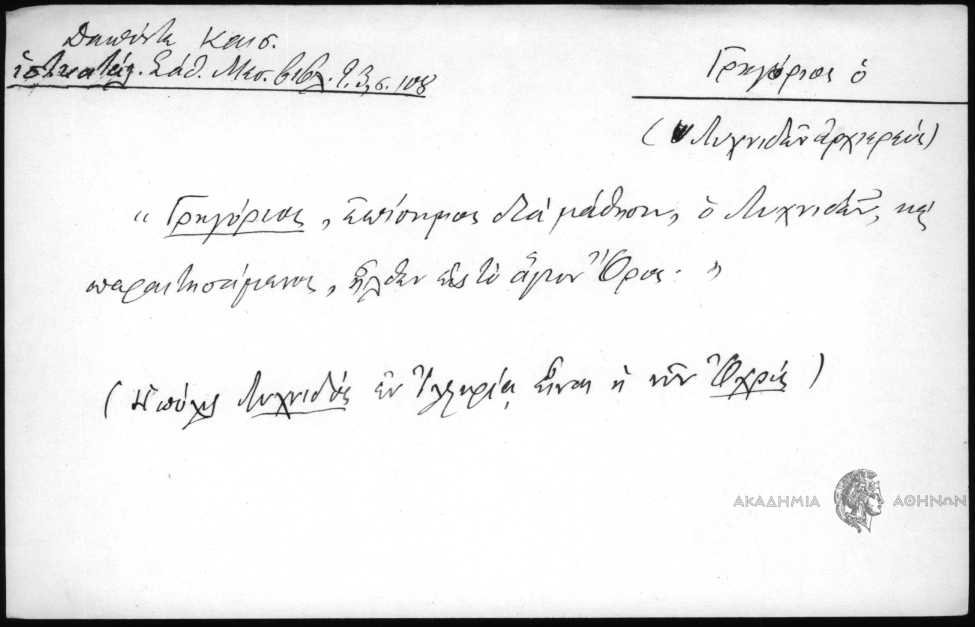 Δαπόντε Καισ.
ἱστ. κατάλ. Σάθ. Μεσ. βιβλ. Γ. 3, σ. 108
Γρηγόριος ὁ
(Λυχνιδῶν ἀρχιερεύς)
"Γρηγόριος, ἐπίσημος διὰ μάθησιν, ὁ Λυχνιδῶν, καὶ
παραιτησάμενος, ἦλθεν εἰς τὸ ἅγιον Ὄρος."
(Ἡ πόλις Λυχνιδός ἐν Ἰλλυρίᾳ εἶναι ἡ νῦν Ὀχρίς)
ΑΚΑΔΗΜΙΑ ΑΘΗΝΩΝ